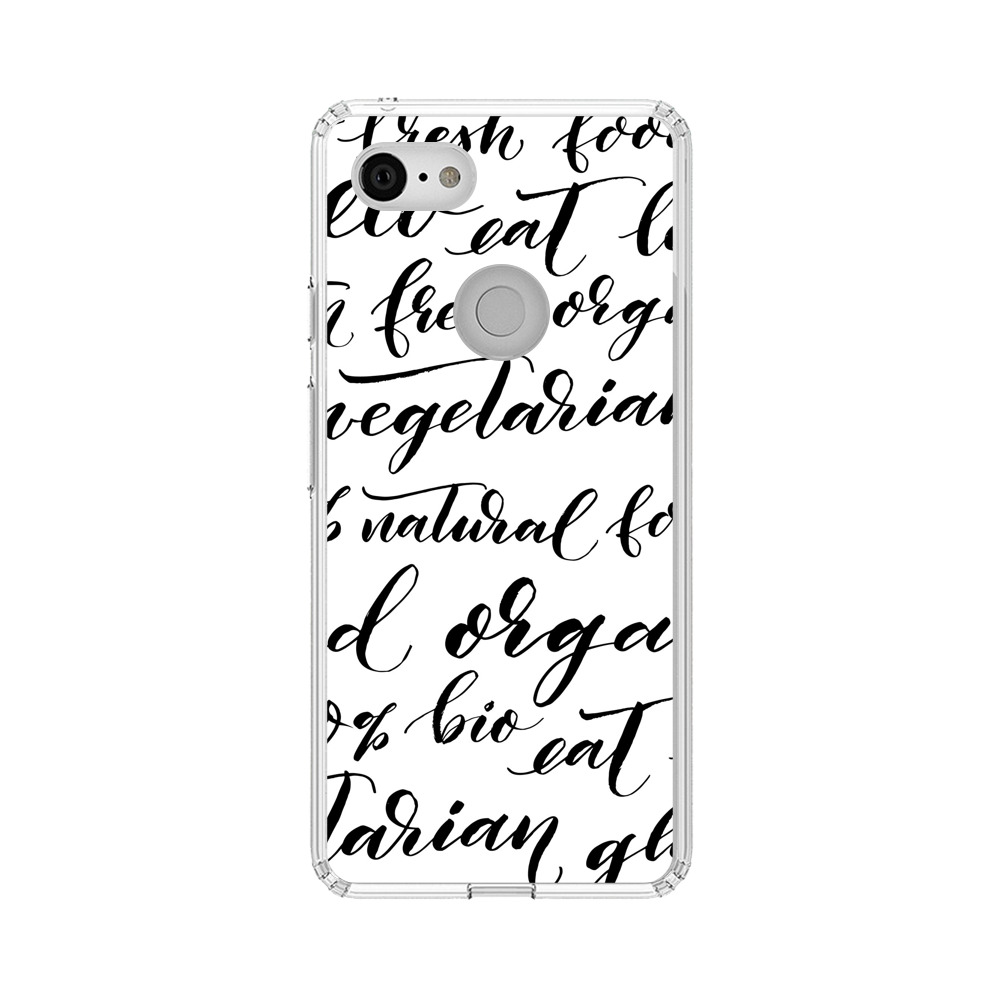 fresh foo
eat l
n fre orga
vegetarian
% natural fo
d orga
0% bio eat
tarian gl